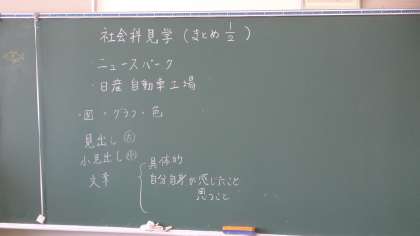 社会科見学(まとめ 1/2)
・ニュースパーク
・日産自動車工場
・図・グラフ・色
見出し(大)
小見出し(小)
文章
具体的
自分自身が感じたこと
思うこと